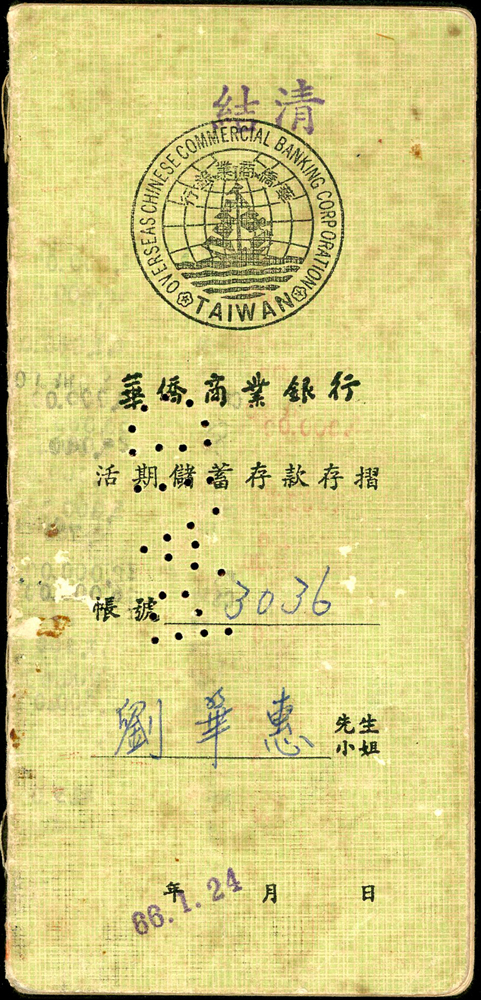 結清
OVERSEAS CHINESE COMMERCIAL BANKING CORPORATION
華僑商業銀行
TAIWAN
華僑商業銀行
活期儲蓄存款存摺
帳號 3036
劉華惠 先生
小姐
年 月 日
66.1.24